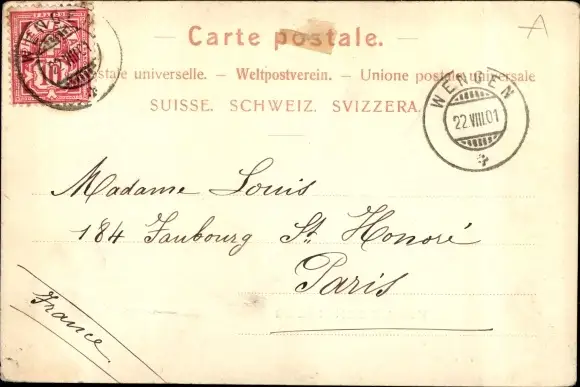 Carte postale.
postale universelle. — Weltpostverein. — Unione postale universale
SUISSE. SCHWEIZ. SVIZZERA.
WENGEN
22.VIII.01
10
WENGEN
22.VIII.01
A
Madame Louis
184 Faubourg St. Honoré
Paris
France